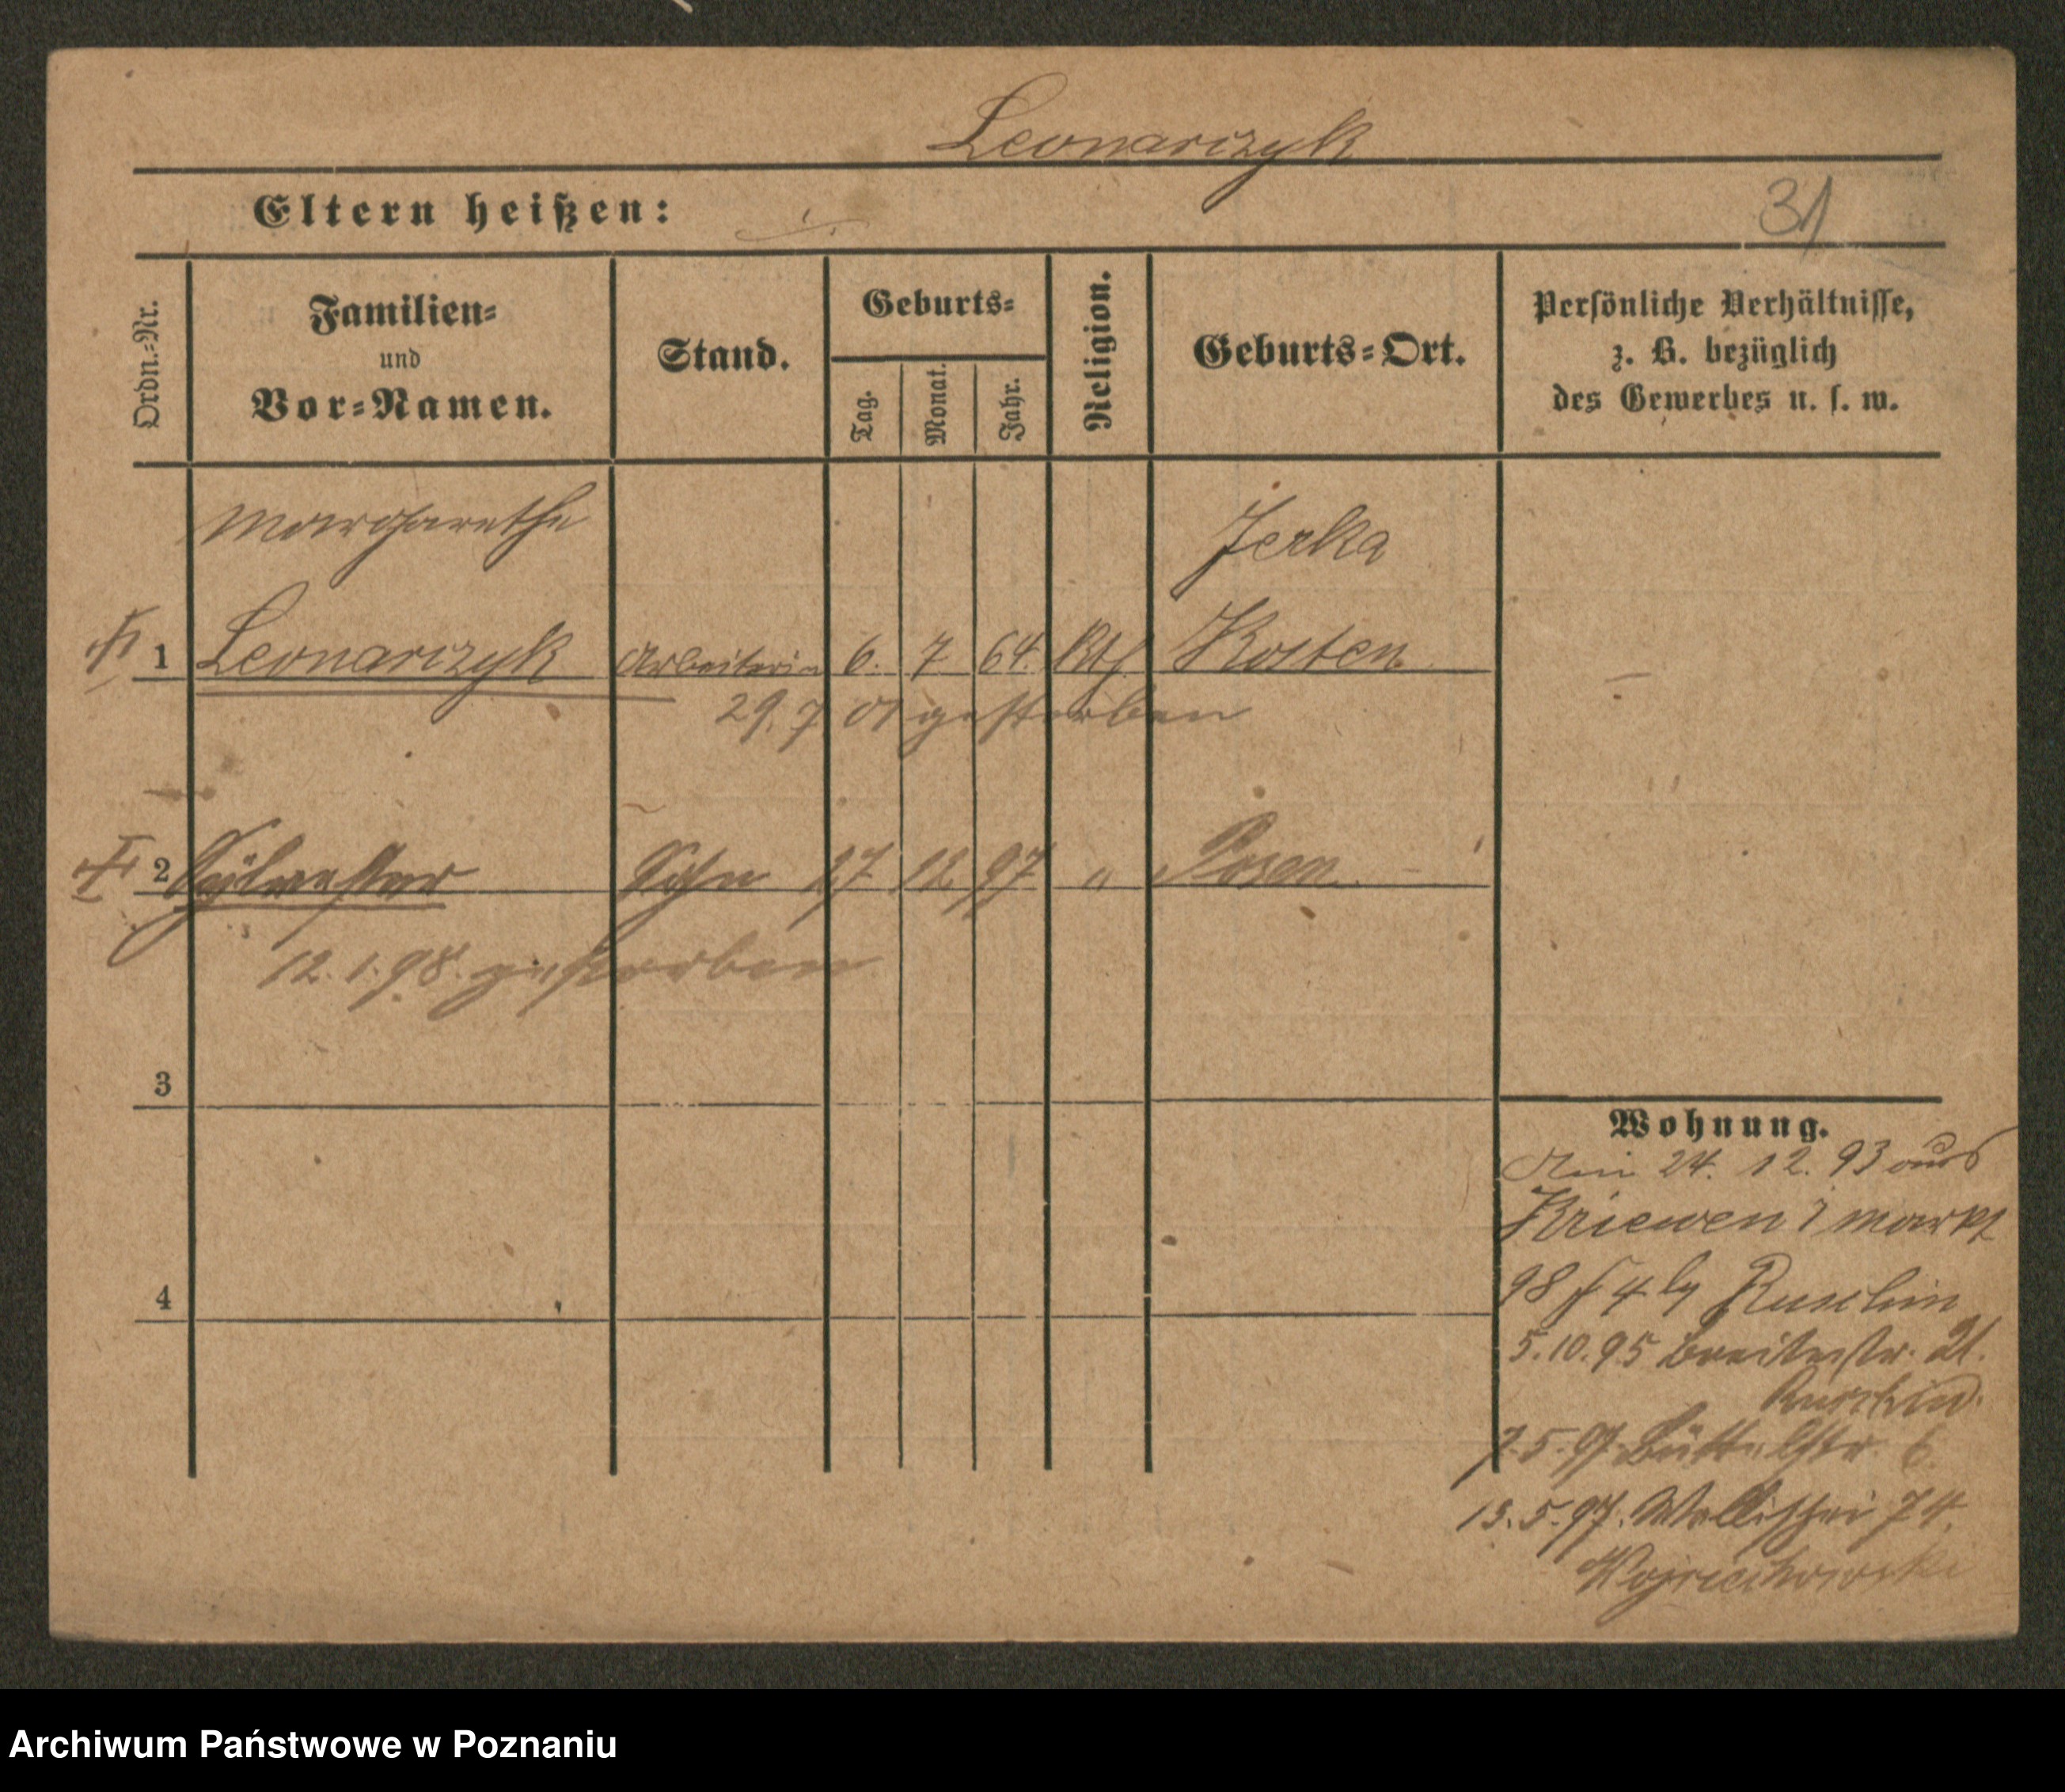 Leonarczyk
Eltern heißen:
31
Ordn.=Nr.
Familien=
und
Vor=Namen.
Stand.
Geburts=
Tag.
Monat.
Jahr.
Religion.
Geburts=Ort.
Persönliche Verhältnisse,
z. B. bezüglich
des Gewerbes u. s. w.
Margarethe
Jerka
1 Leonarczyk Arbeiterin 6. 7. 64. Kth Kosten
29. 7 01 gestorben
2 Sylvester Sohn 27 12. 97 " Posen
12. 1. 98. gestorben
3
4
Wohnung.
24. 12. 93 aus
Kriewen Markt
98 4
5. 10. 95 Breitestr. 21.
7. 5. 97. Büttelstr. 6.
13. 5. 97. Wallischei 74.
Wojciechowski
Archiwum Państwowe w Poznaniu